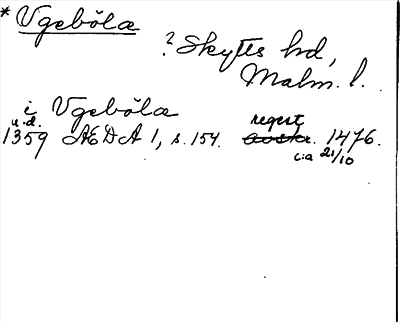 * Vgebôlæ
? Skytts hd,
Malm. l.
i Vgebôlæ
u.d.
1359 ÆDA 1, s. 154. regest avskr. 1476.
c:a 21/10